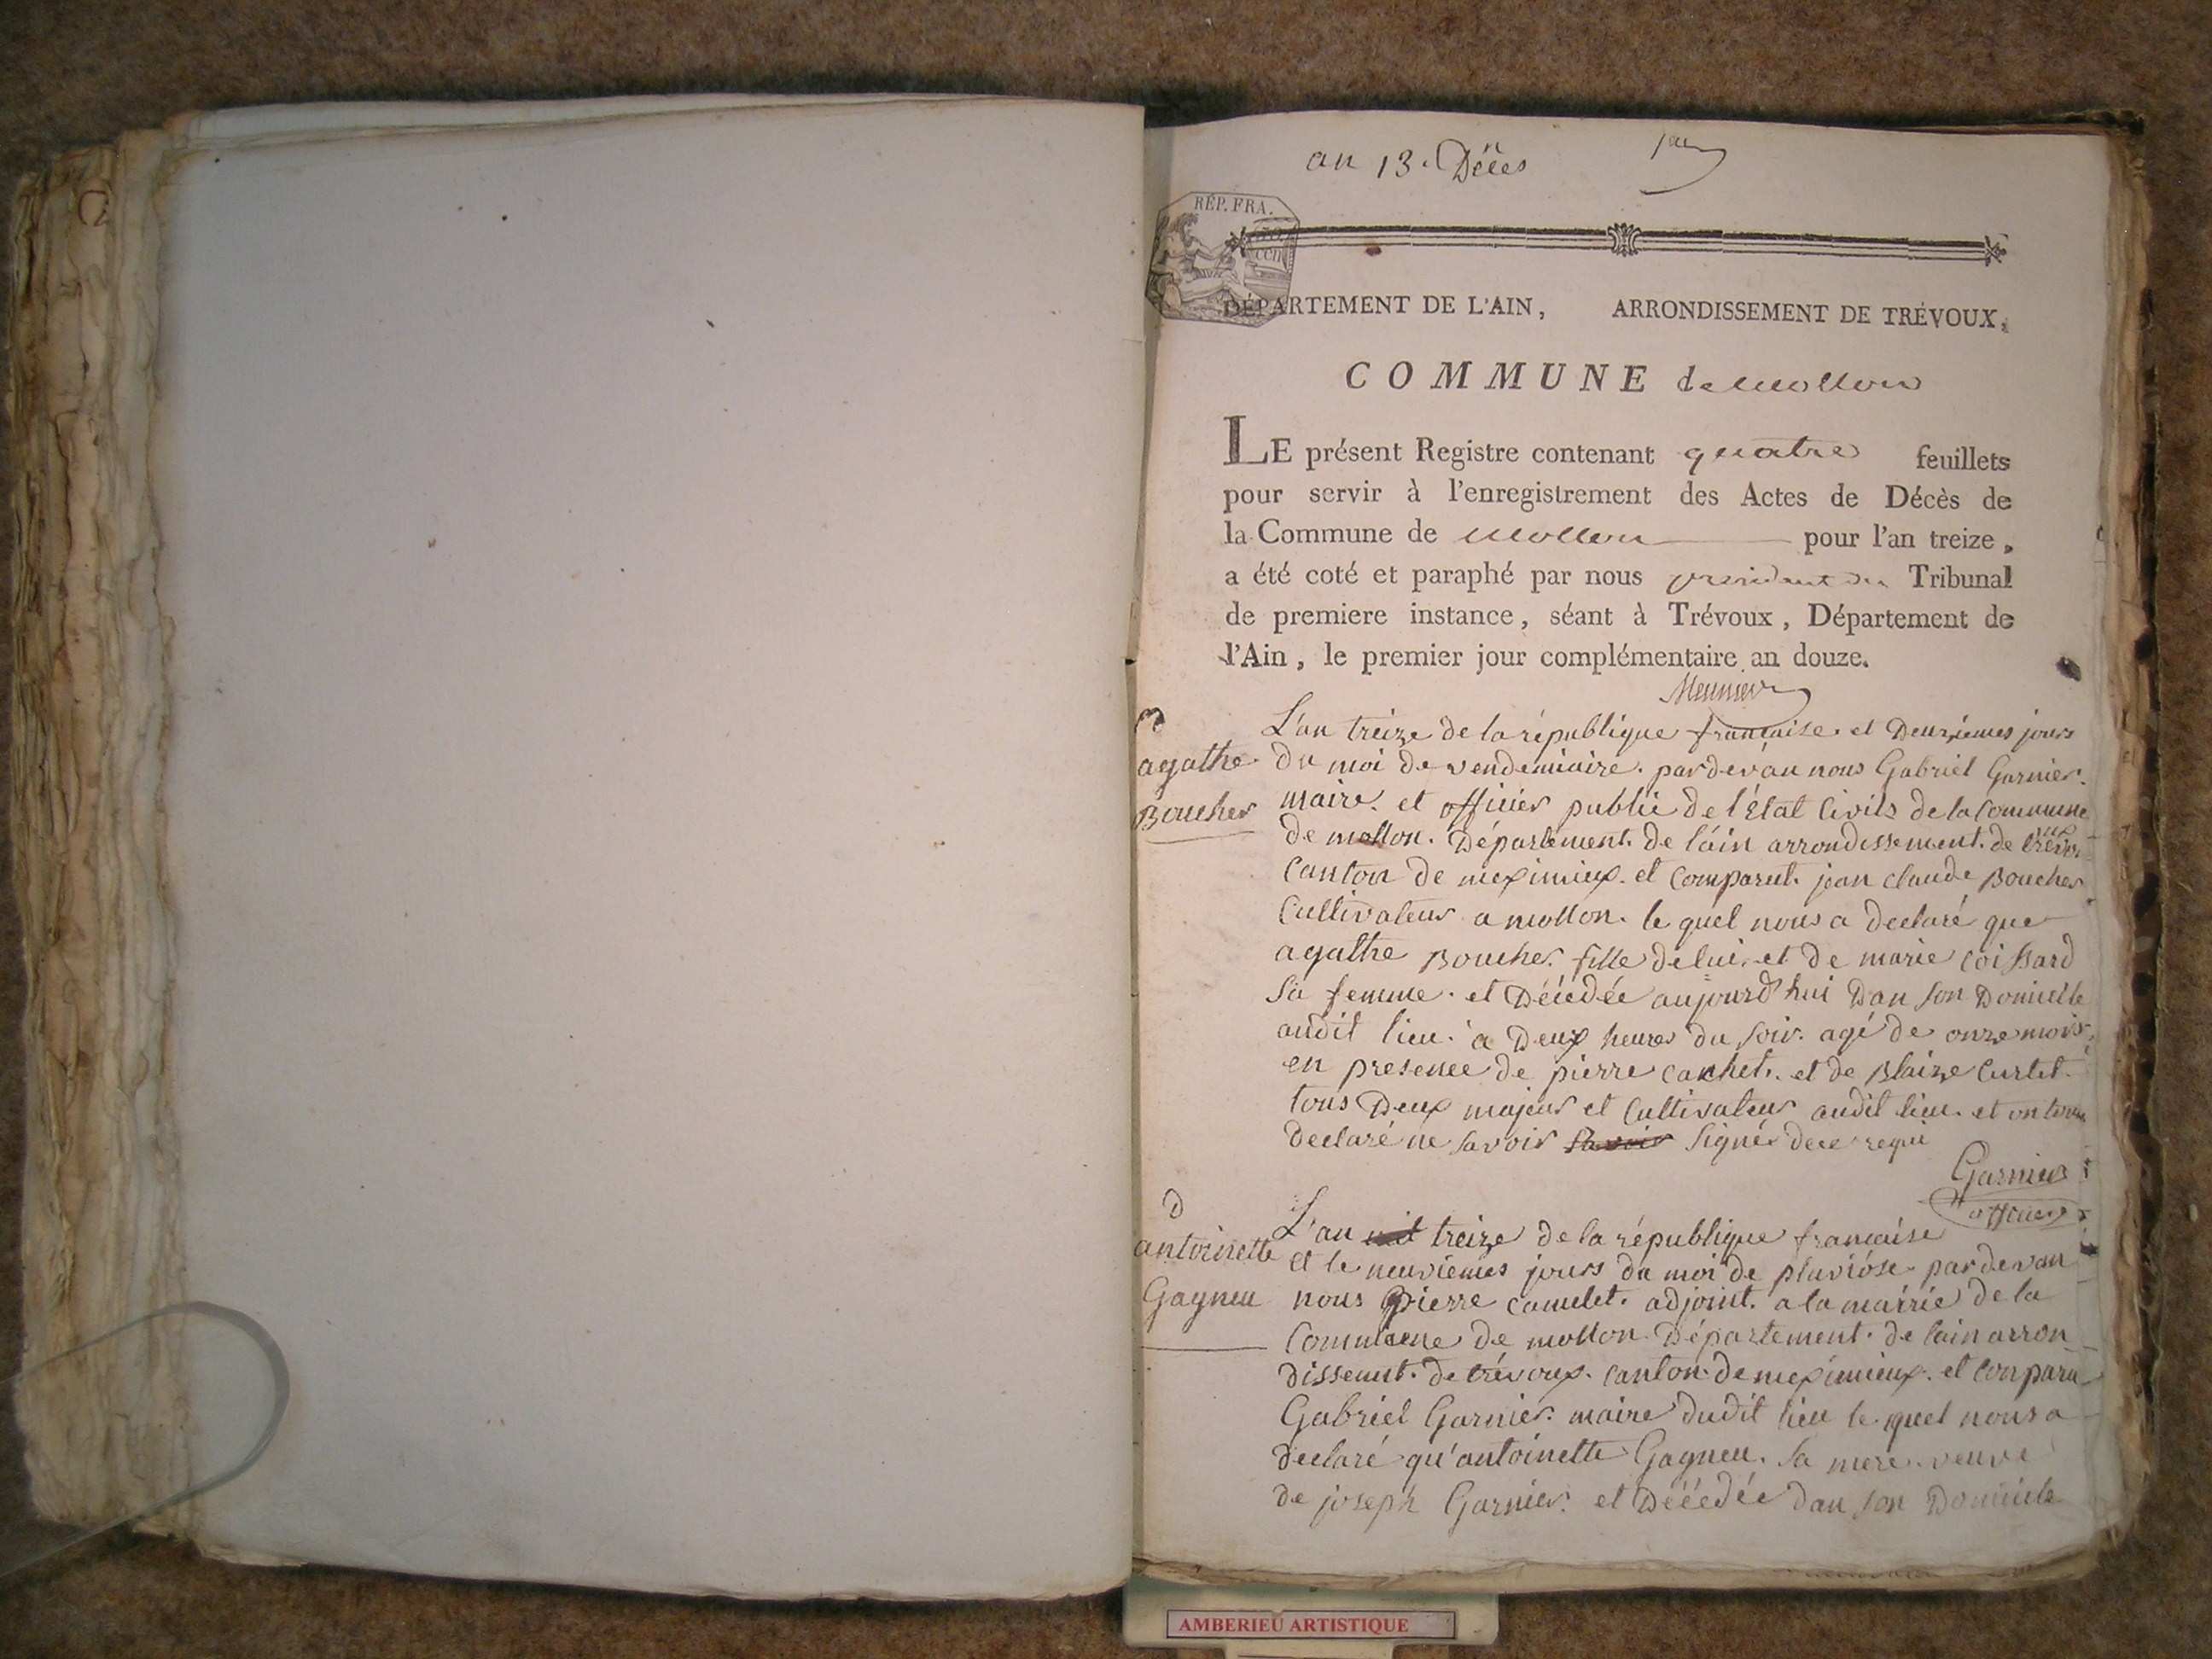 an 13. Décès
RÉP. FRA.
DÉPARTEMENT DE L'AIN, ARRONDISSEMENT DE TRÉVOUX,
COMMUNE de mollon
LE présent Registre contenant quatre feuillets
pour servir à l'enregistrement des Actes de Décès de
la Commune de mollon pour l'an treize,
a été coté et paraphé par nous président du Tribunal
de premiere instance, séant à Trévoux, Département de
l'Ain, le premier jour complémentaire an douze.
Meunier
D
agathe
Boucher
L'an treize de la république francaise et Deuxiemes jours
du moi de vendemiaire. pardevan nous Gabriel Garnier.
maire. et officier public de l'État Civils de la Commune
de mollon. Département. de l'ain arrondissement. de trévoux
Canton de meximieux. et Comparut. jean claude Boucher
Cultivateur a mollon. le quel nous a declaré que
agathe Boucher. fille de lui. et de marie Coissard
sa femme. et Décédée aujourd'hui Dan son Domicile
audit lieu. a Deux heures du soir. agé de onze mois.
en presence de pierre cachet. et de Blaize Curtet.
tous Deux majeur et Cultivateur audit lieu. et on tous
declaré ne savoir savoir signér de ce requi
Garnier
officier
D
antoinette
Gagneu
L'an mil treize de la république francaise
et le neuviemes jours du moi de pluviôse. pardevan
nous pierre camelet. adjoint. a la mairie de la
Commune de mollon. Département. de lain arron
dissemt. de trévoux. canton. de meximieux. et Conparu
Gabriel Garnier. maire dudit lieu le quel nous a
declaré qu'antoinette Gagneu. sa mere. veuve
de joseph Garnier. et Décédée dan son Domicile
AMBERIEU ARTISTIQUE